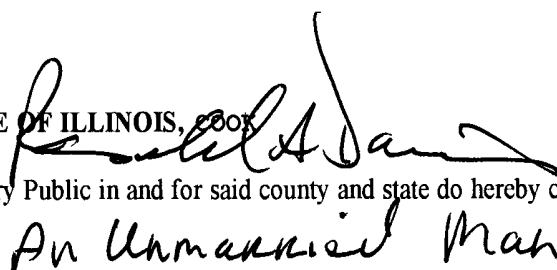 E OF ILLINOIS, COOK
A Davi
y Public in and for said county and state do hereby c
An Unmarried Man